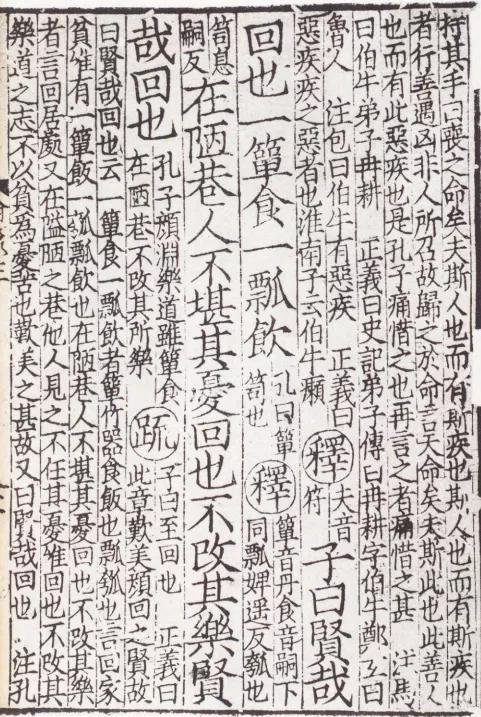 持其手曰喪之命矣夫斯人也而有斯疾也斯人也而有斯疾也
者行善遇凶非人所召故歸之於命言天命矣夫斯此也此善人
也而有此惡疾也是孔子痛惜之也再言之者痛惜之甚　注馬
曰伯牛弟子冉耕　正義曰史記弟子傳曰冉耕字伯牛鄭玄曰
魯人　注包曰伯牛有惡疾　正義曰
惡疾疾之惡者也淮南子云伯牛癩
釋
夫音
符
子曰賢哉
回也一簞食一瓢飲
孔曰簞
笥也
釋
簞音丹食音嗣下
同瓢婢遥反瓠也
笥息
嗣反
在陋巷人不堪其憂回也不改其樂賢
哉回也
孔子顔淵樂道雖簞食
在陋巷不改其所樂
疏
子曰至回也　正義曰
此章歎美顔回之賢故
曰賢哉回也云一簞食一瓢飲者簞竹器食飯也瓢瓠也言回家
貧唯有一簞飯一瓠瓢飲也在陋巷人不堪其憂回也不改其樂
者言回居處又在隘陋之巷他人見之不任其憂唯回也不改其
樂道之志不以貧爲憂苦也歎美之甚故又曰賢哉回也　注孔